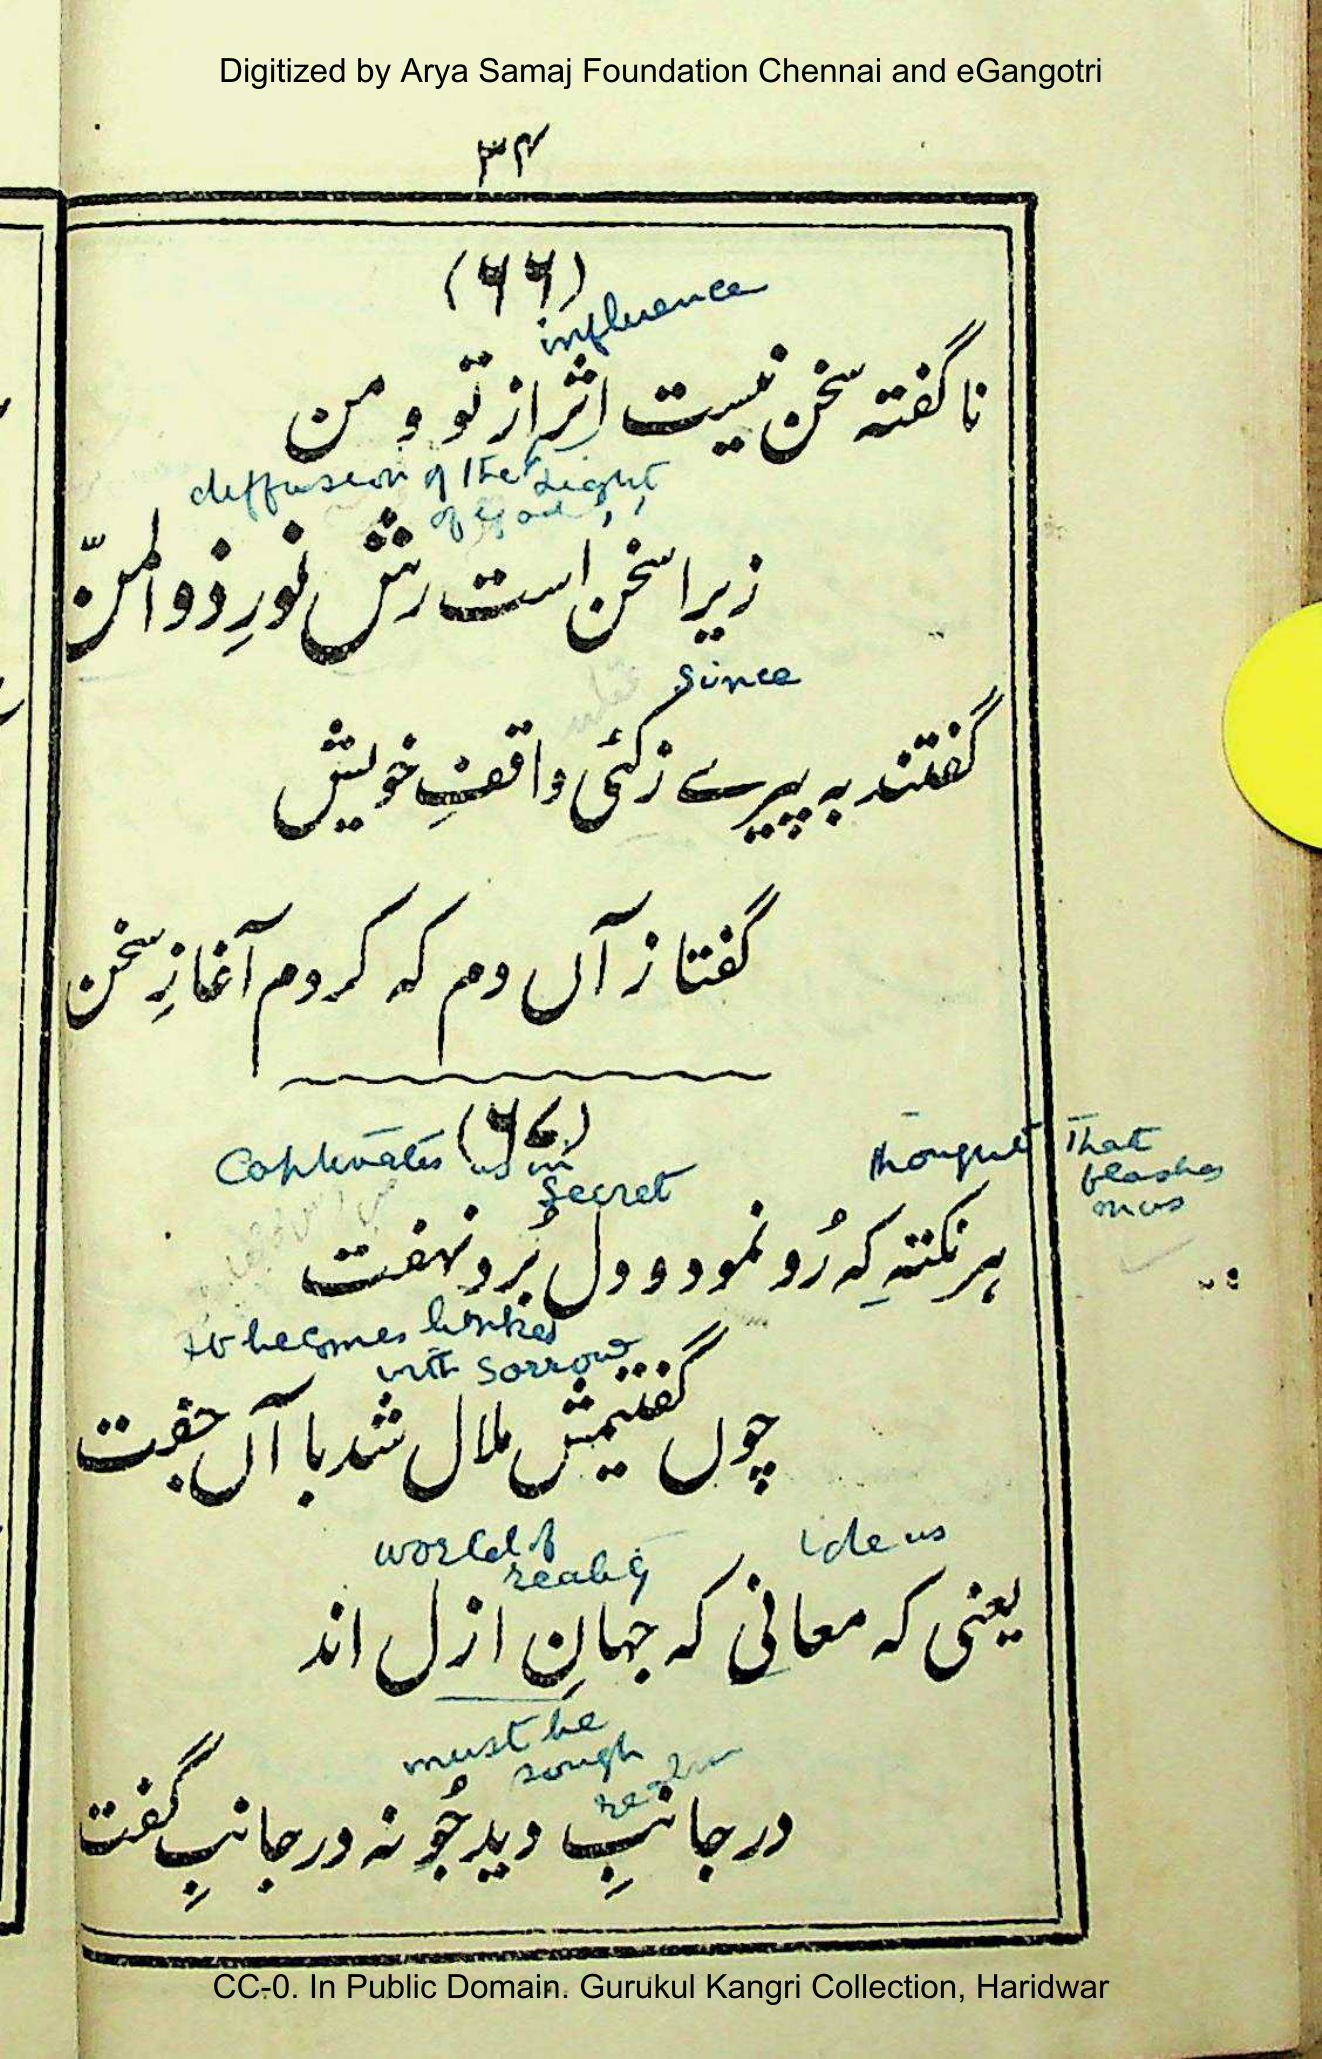 Digitized by Arya Samaj Foundation Chennai and eGangotri
۳۴
(۶۶)
influence
ناگفتہ سخن نیست اثر از تو و من
diffusion of the Light
of God
زیرا سخن است رشِ نورِ ذوالمنّ
Since
گفتند بہ پیرے ز کئی واقفِ خویش
گفتا ز آں دم کہ کردم آغازِ سخن
(۶۷)
Captivates us in
Secret
thought That
flashes
on us
ہر نکتہِ کہ رُو نمود و دل بُرد نہفت
It becomes linked
with sorrow
چوں گفتیمش ملال شد با آں جفت
world of
reality
ideas
یعنی کہ معانی کہ جہانِ ازل اند
must be
sough
realm
در جانبِ دید جُو نہ در جانبِ گفت
CC-0. In Public Domain. Gurukul Kangri Collection, Haridwar